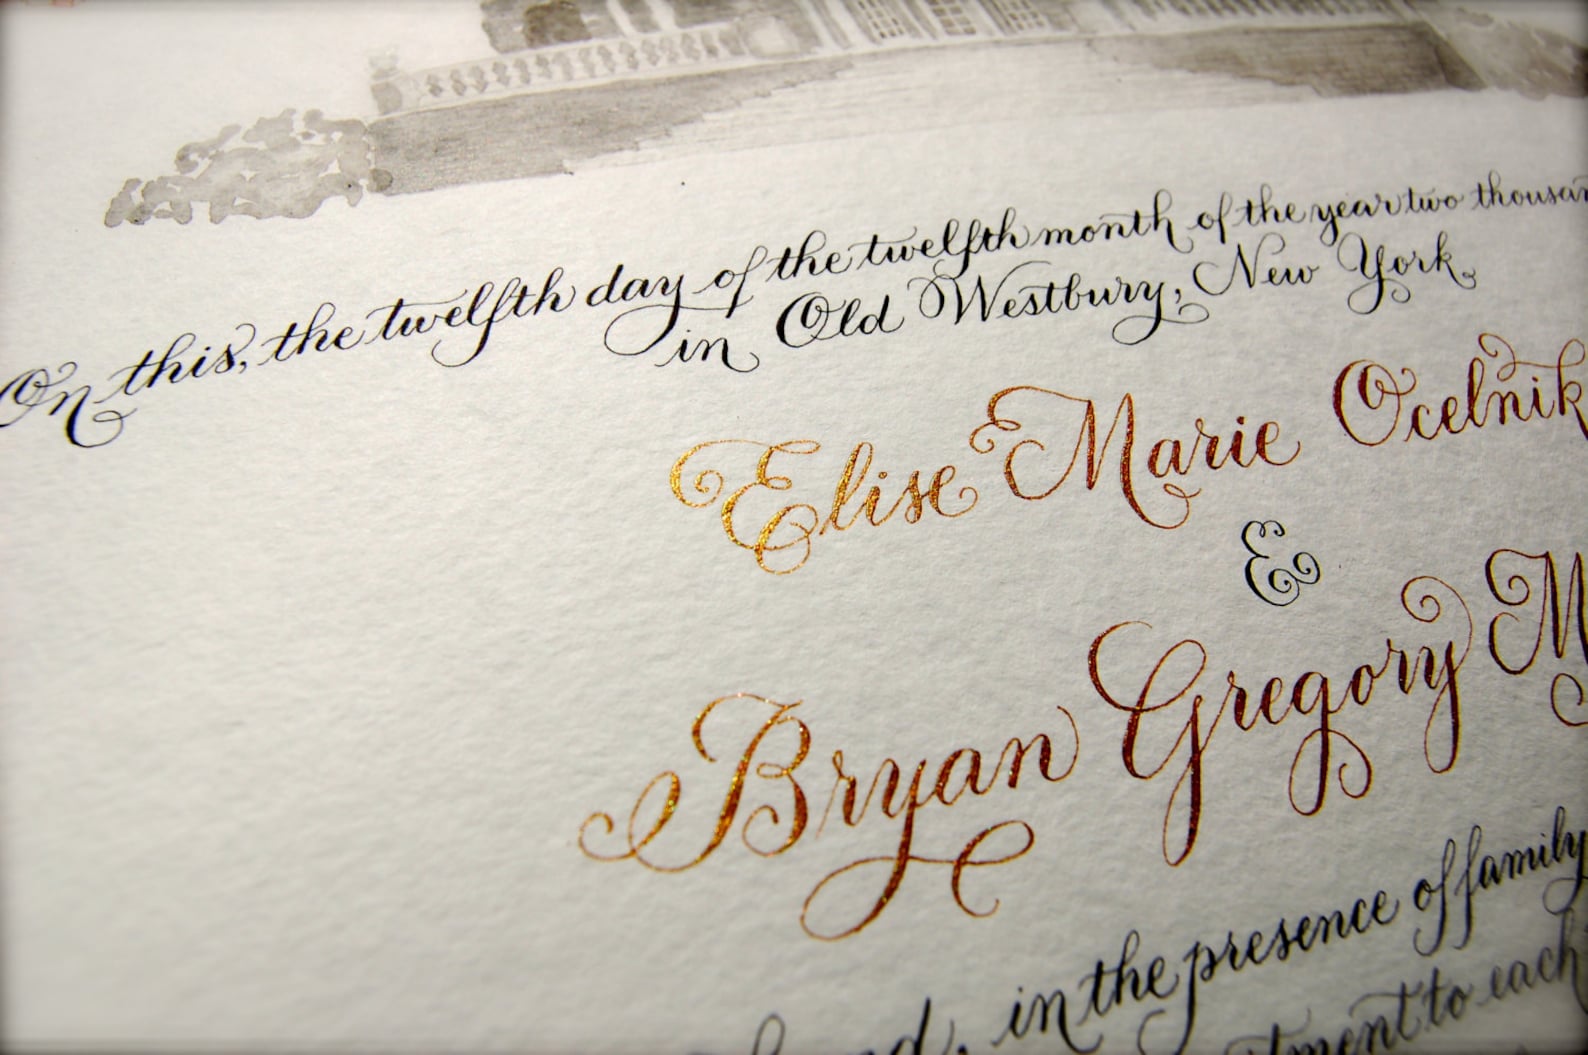 On this, the twelfth day of the twelfth month of the year two
in Old Westbury, New York,
Elise Marie Ocelnik
&
Bryan Gregory
in the presence of family
to each